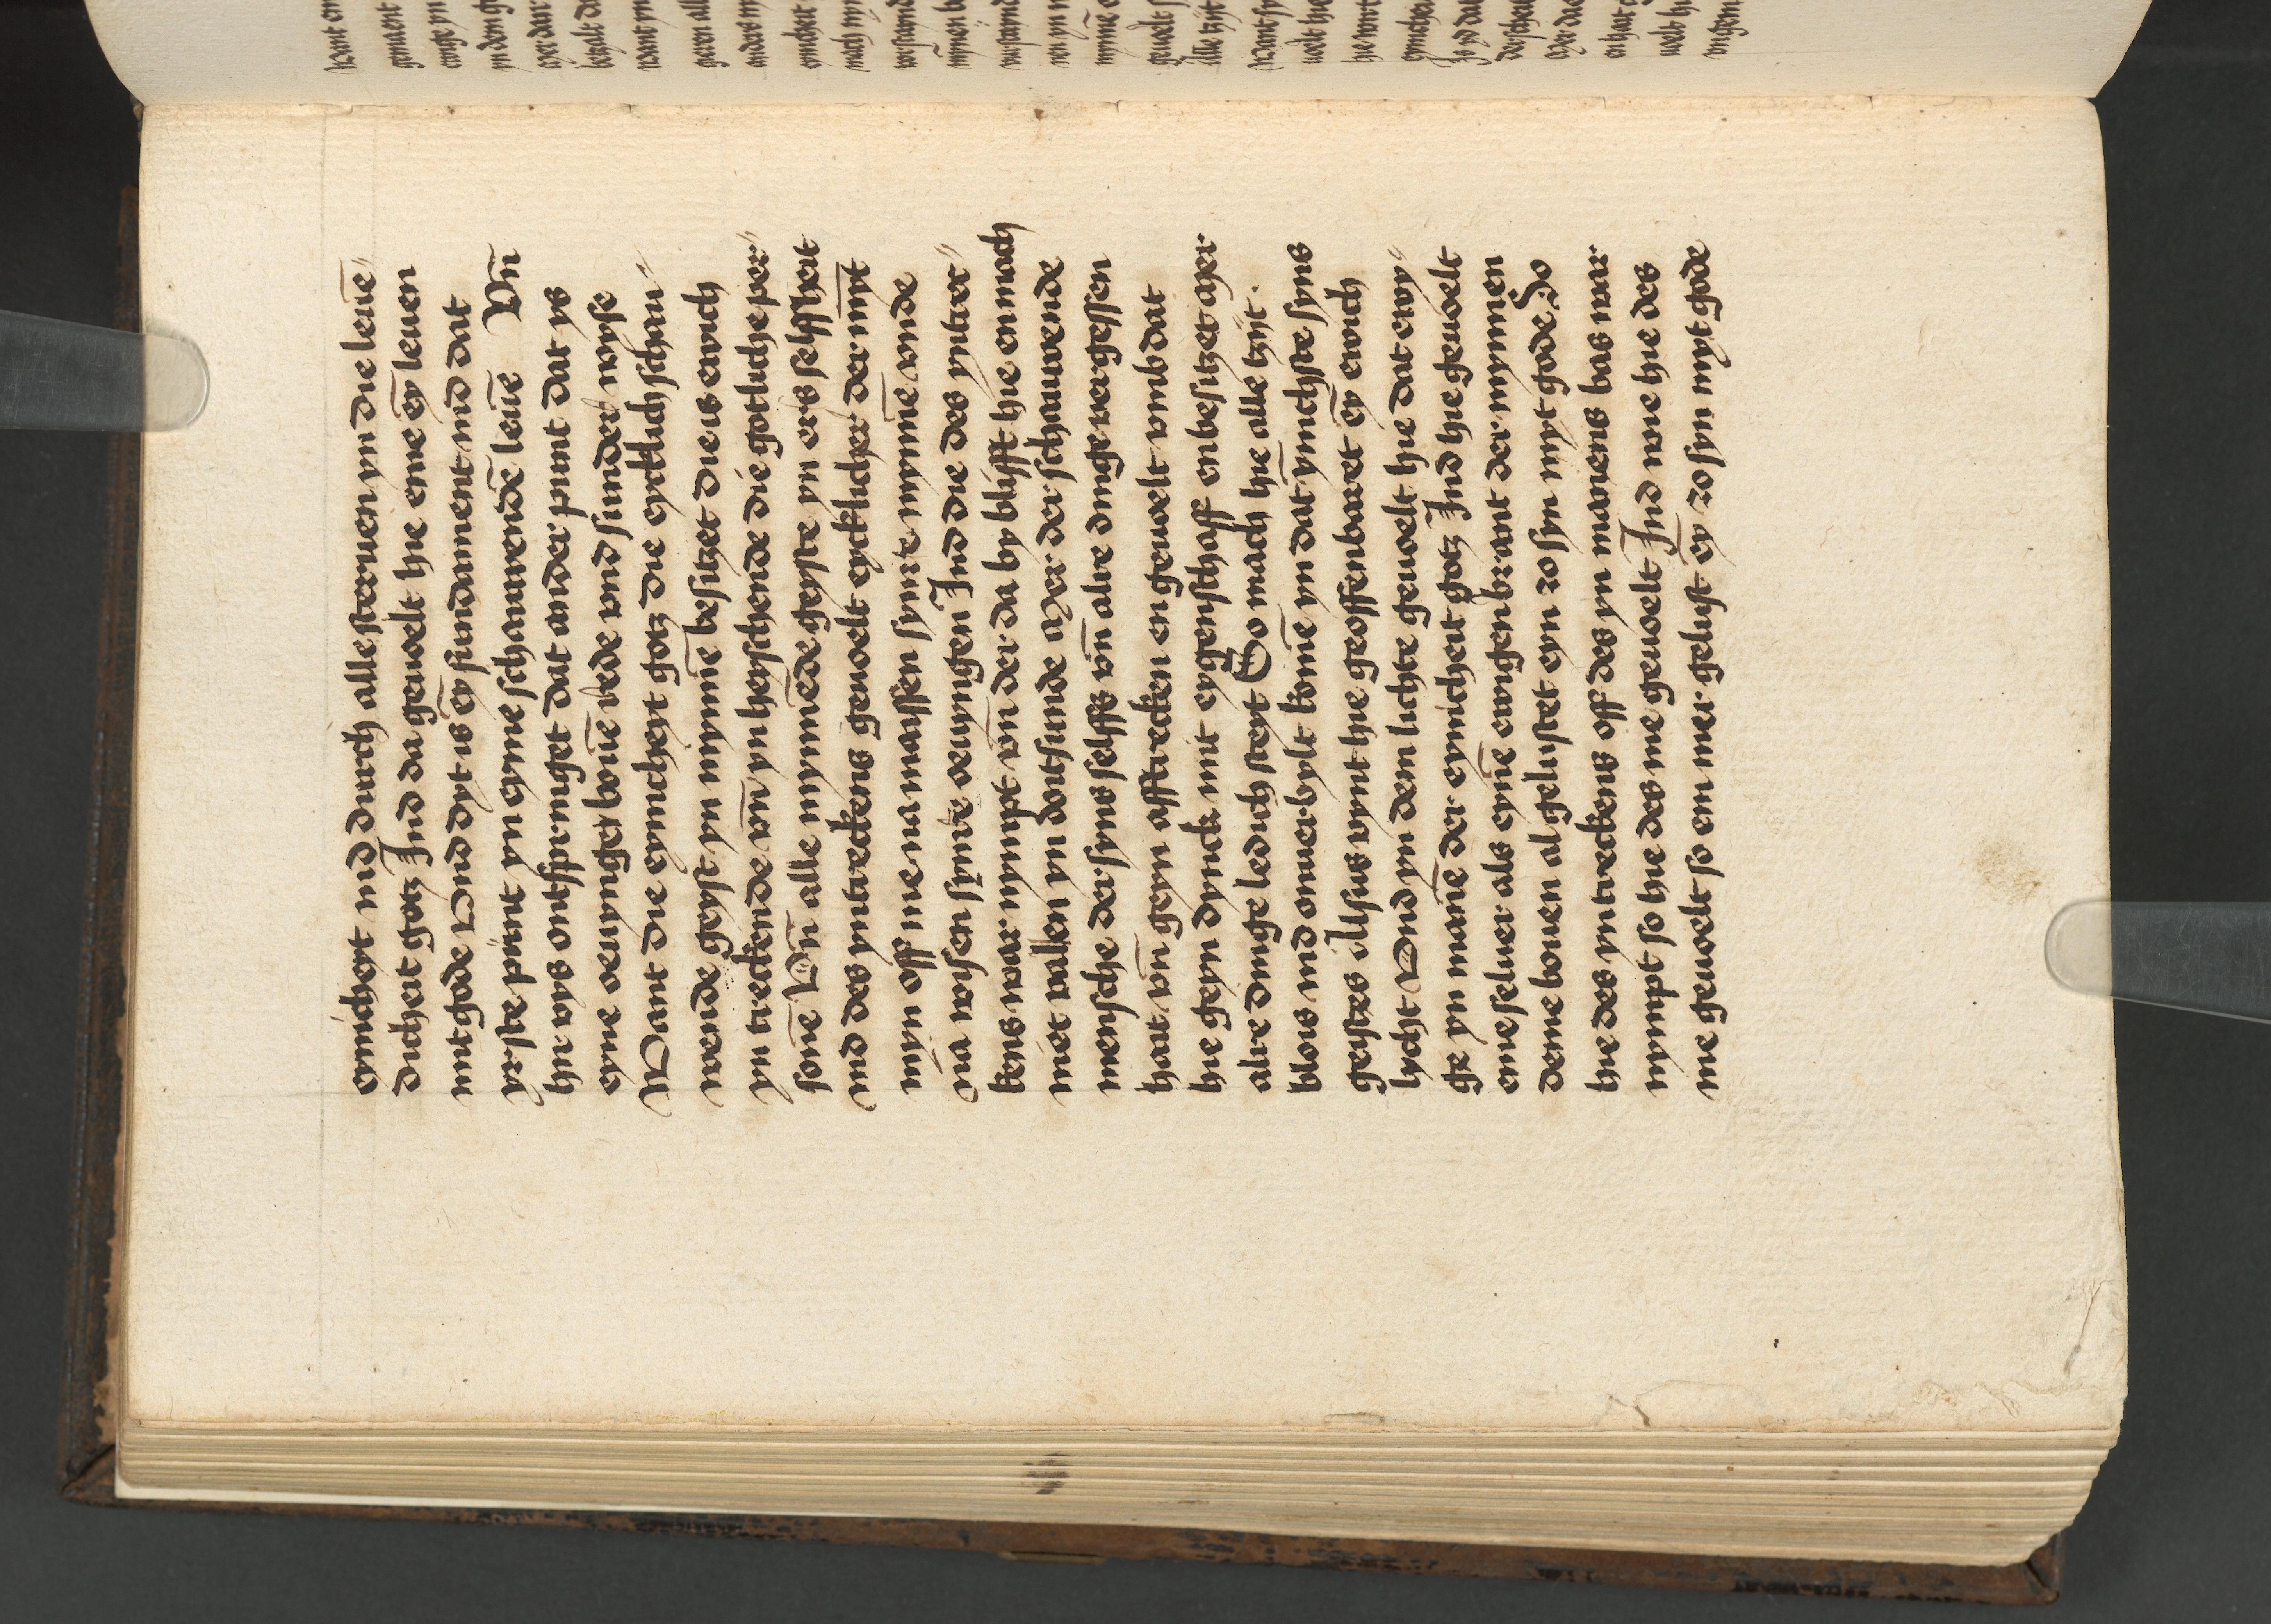 eynicheyt ind durch alle steruen yn die leuē
dicheit gotz Ind da geuoelt hie eme eȳ leuen
mit gode Vnd dyt is eȳ fundament ind dat
yrste pūnt yn eyme schauwendē leuē Vn̄
hir vys ontspringet dat ander punt dat ys
eyne oeuynge bouē rede vnd sunder wyse
Want die eynicheyt gotz die eycklich schau
wende geyst yn mynnē besitzet die is ewich
yn treckende vn̄ yn heysschende die gotliche per
sonē Vn̄ alle mynnēde geyste yn ers selffsheit
ind des yntreckens geuoelt eycklicher der mȳt
myn off me na maissen synre mynnē vnde
na wisen synre oeuyngen Ind die des yntrec
kens war nympt vn̄ der da by blijfft hie en mach
niet vallen yn doitsunde ayer der schauwende
mensche der syns selffs vn̄ alre dinge vergessen
hait vn̄ geyn afftrecken en geuoelt vmb dat
hie geyn dynck mit eygenschaff en besitzet ayer
alre dinge ledich steyt So mach hie alle tzijt
blois ind onuerbylt komē yn dat ynnichste syns
geystes Alsus vynt hie geoffenbaret eȳ ewich
lycht Vnd yn dem lichte geuoelt hie dat ewy
ge yn manē der eynicheit gotz Ind hie geuoelt
eme seluer als eynē ewigen brant der mynnen
deme bouen al gelustet eyn zo syn myt gode So
hie des yntreckens off des yn manens bas war
nympt so hie des me geuoelt Ind wie hie des
me geuoelt so em mer gelust eȳ zo syn myt gode